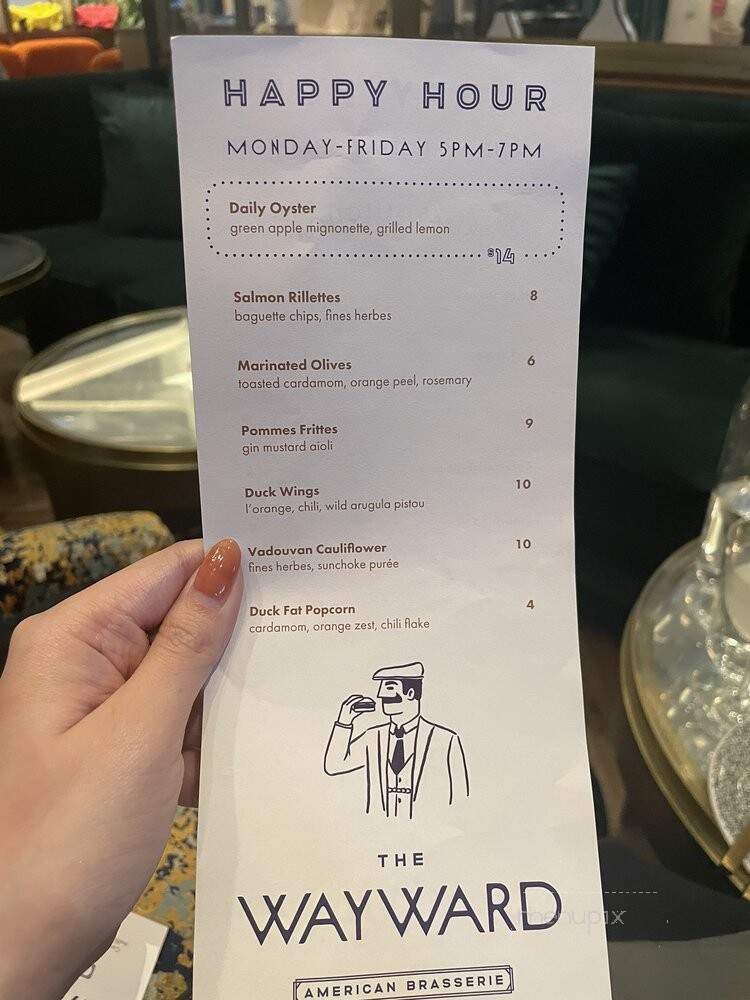 HAPPY HOUR
MONDAY-FRIDAY 5PM-7PM
Daily Oyster
green apple mignonette, grilled lemon
$14
Salmon Rillettes 8
baguette chips, fines herbes
Marinated Olives 6
toasted cardamom, orange peel, rosemary
Pommes Frittes 9
gin mustard aioli
Duck Wings 10
l'orange, chili, wild arugula pistou
Vadouvan Cauliflower 10
fines herbes, sunchoke purée
Duck Fat Popcorn 4
cardamom, orange zest, chili flake
THE
WAYWARD
menupix
AMERICAN BRASSERIE